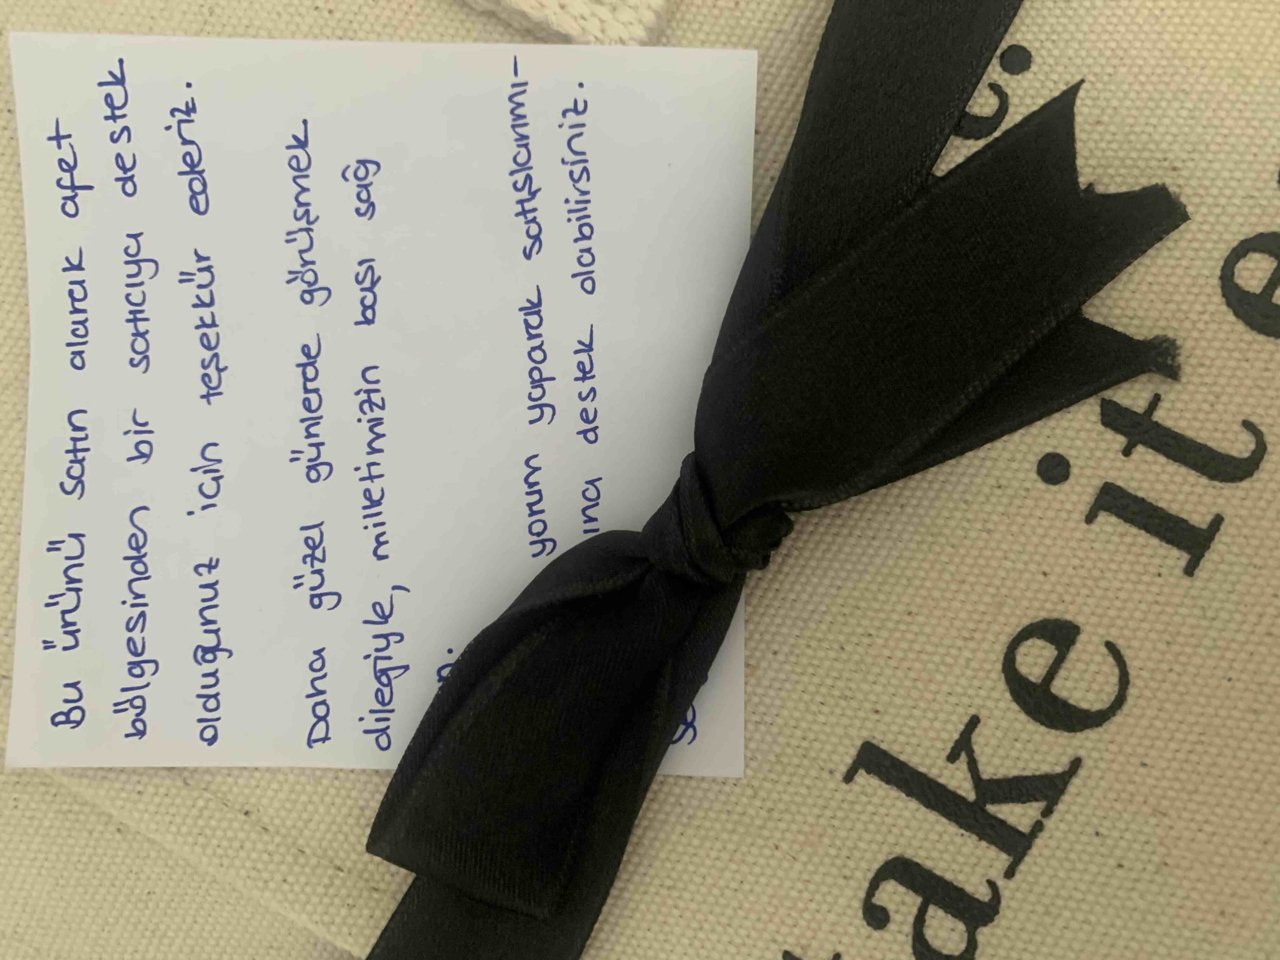 Bu ürünü satın alarak afet
bölgesinden bir satıcıya destek
olduğunuz için teşekkür ederiz.
Daha güzel günlerde görüşmek
dileğiyle, milletimizin başı sağ
yorum yaparak satışlarımı-
destek olabilirsiniz.
take it e
e.